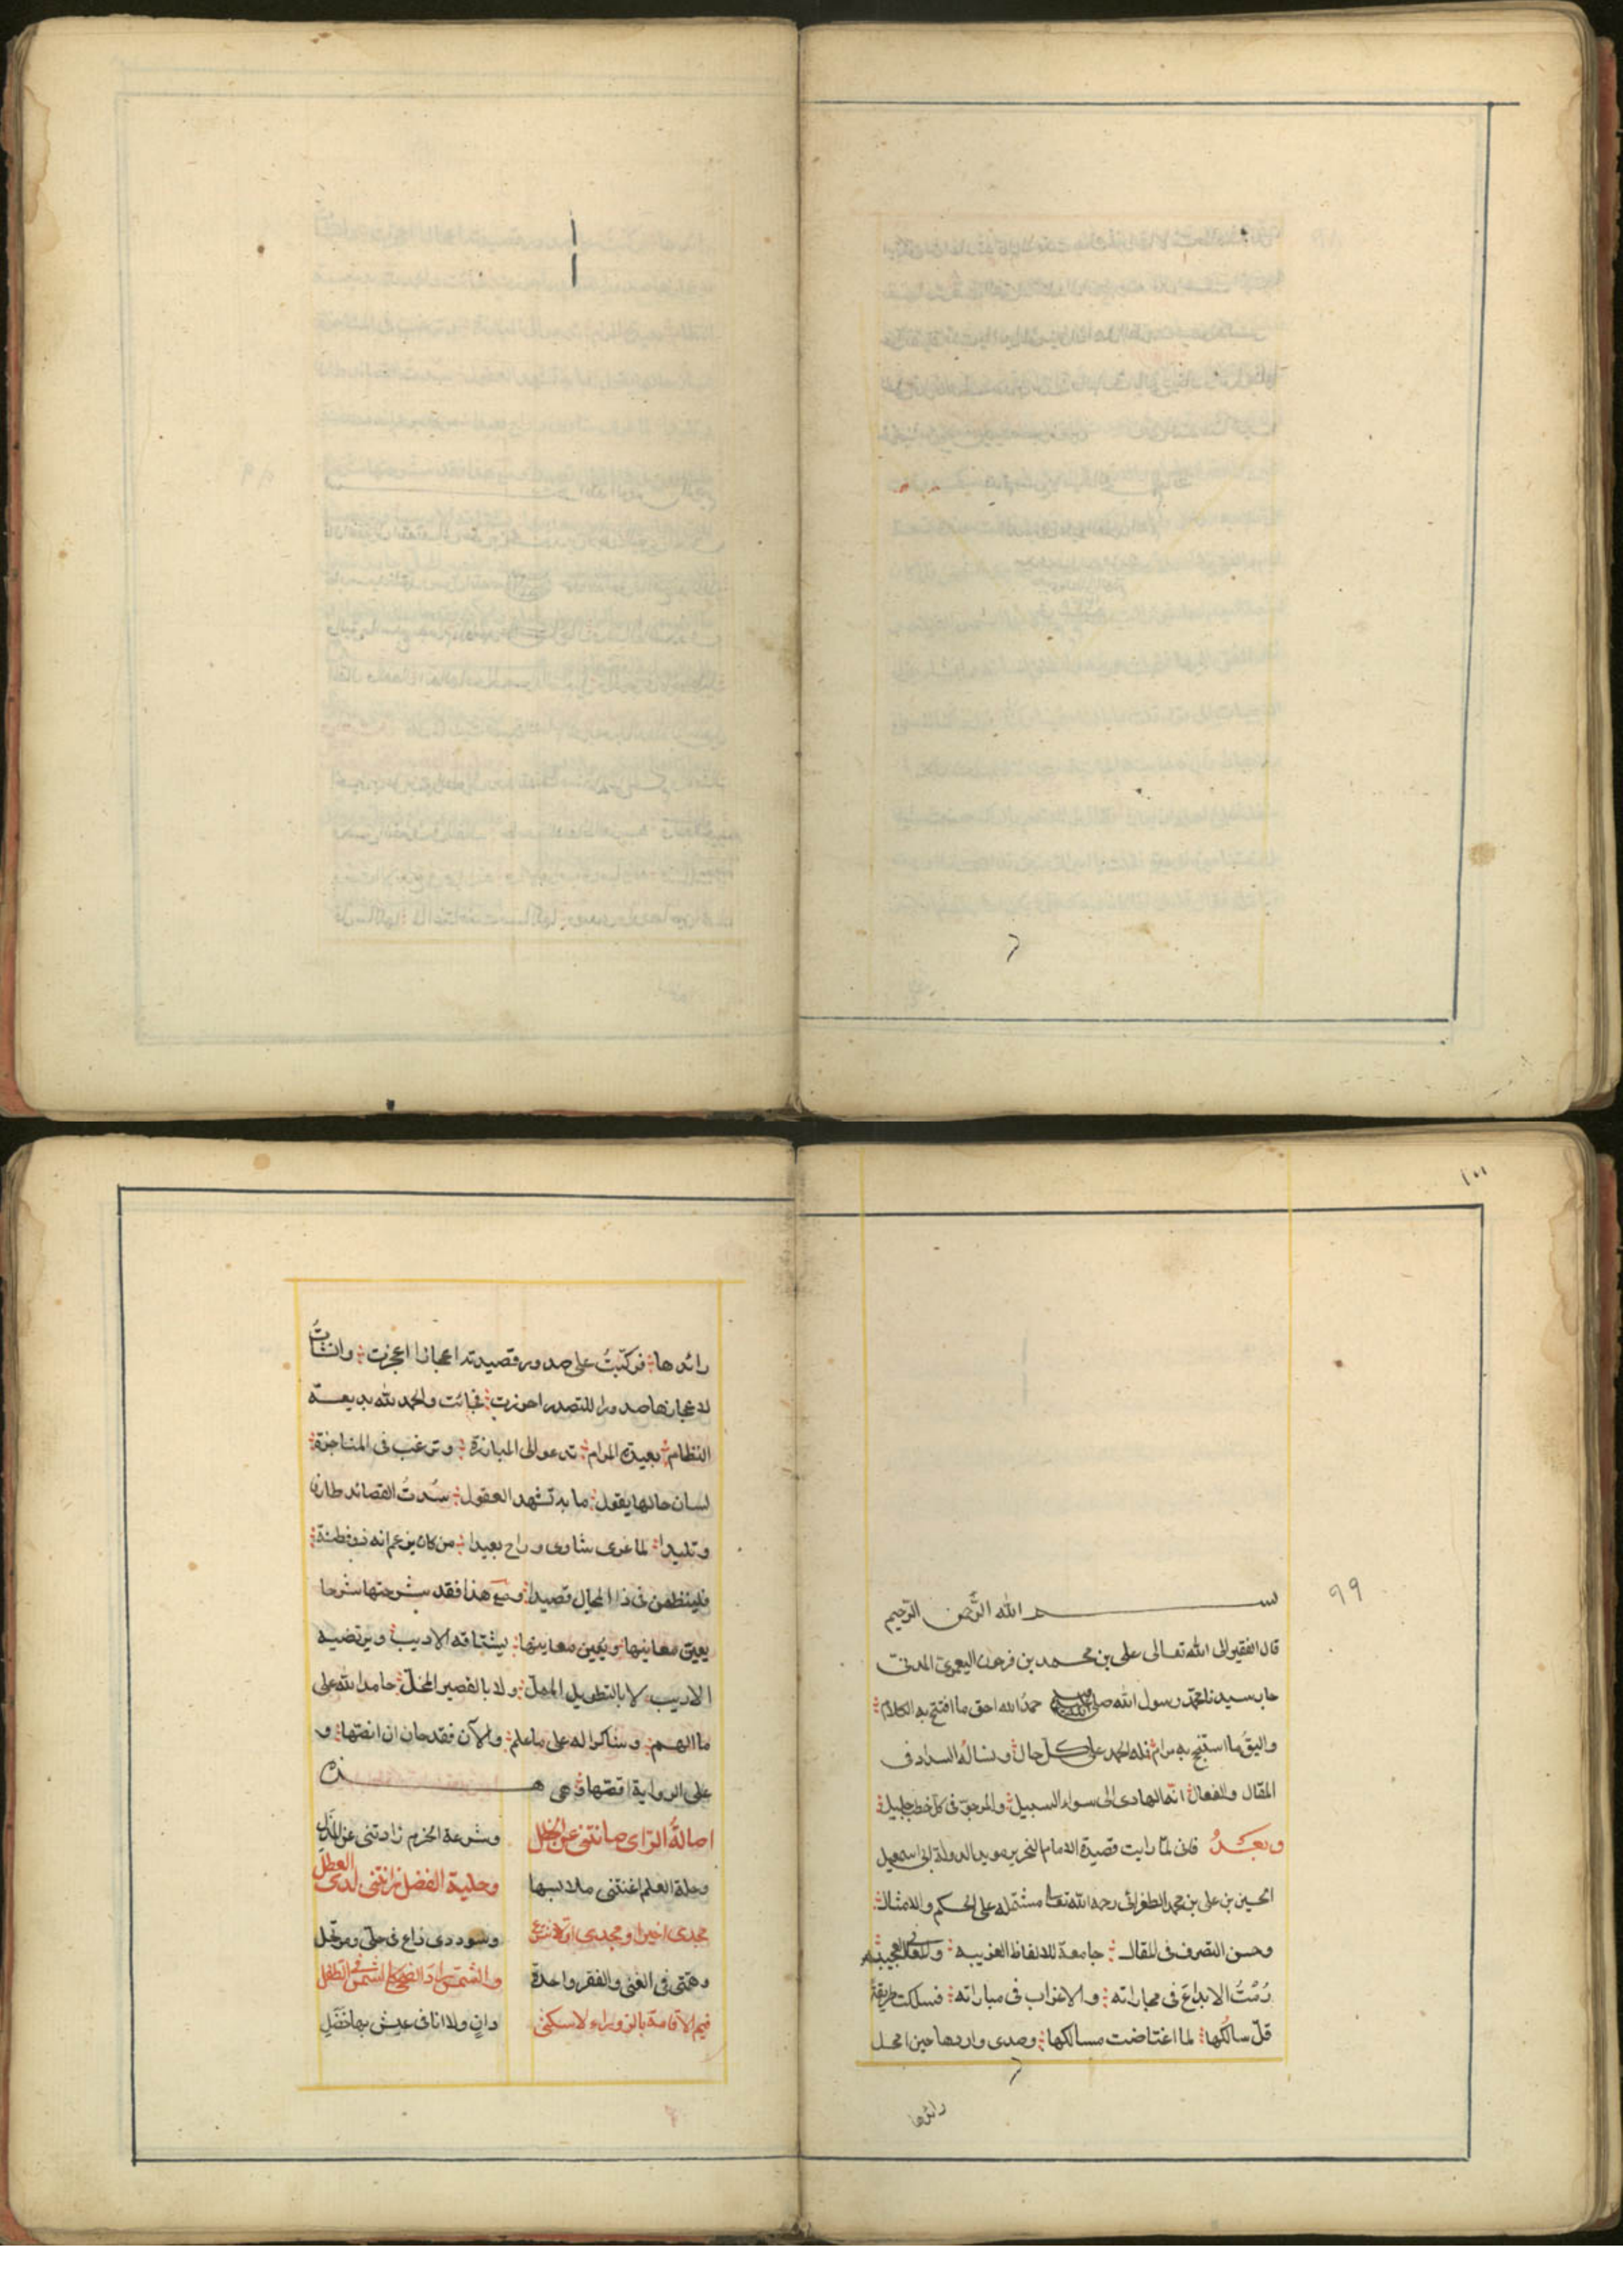 ١٠٠
٩٩
بســـم الله الرحمن الرحيم
قال الفقير الى الله تعالى على بن محمد بن فرحون اليعمرى المدنى
جار سيدنا محمد رسول الله صلى الله عليه وسلم حمدُ الله احق ما افتتح به الكلام
واليقُ ما استنجح به مرام فله الحمد على كل حال ونساله السداد فى
المقال والفعال انه الهادى الى سواء السبيل والمرجوّ فى كل خطب جليل
وبعــدُ فانى لمّا رايت قصيدة الامام النحرير مويد الدولة ابى اسمعيل
الحسين بن على بن محمد الطغرائى رحمه الله تعالى مشتمله على الحكم والامثال
وحسن التصرف فى المقال جامعة للالفاظ الغريبه والمعانى العجيبه
رُمْتُ الابداع فى مجاراته والاغراب فى مباراته فسلكت طريقة
قلّ سالكُها لما اغتاضت مسالكها وصدى واردها حين امحل
رائدها
رائدها فركّبتُ على صدور قصيدته اعجازا اعجزت وانشاتُ
لاعجازها صدورا للتصدر احرزت فجائت والحمد لله بديعة
النظام بعيدة المرام تدعو الى المبارزة وترغب فى المناجزة
لسان حالها يقول ما به تشهد العقول سُدتُ القصائد طارفا
وتليدا لما غرى شاوى وراح بعيدا من كان يزعم انه ذو فطنة
فلينظمن فى ذا المجال قصيدا ومع هذا فقد شرحتها شرحا
يعين معانيها ويبين معاينها يشتاقه الاديب ويرتضيه
الاريب لا بالتطويل الممل ولا بالقصير المخلّ حامدا لله على
ما الهم وشاكرا له على ما علم والآن فقد حان ان انصّها و
على الرواية اقصّها وهى هـــذه
اصالةُ الراى صانتنى عن الخطل وشرعة الحزم زادتنى عن المذل
وحلة العلم اغنتنى ملابسها وحلية الفضل زانتنى لدى العطل
مجدى اخيرا ومجدى اولا شرع وسوددى ذاع فى حلى ومرتحل
وهمتى فى الغنى والفقر واحدة والشمس راد الضحى كالشمس فى الطفل
فيم الاقامة بالزوراء لا سكنى دانٍ ولا انا فى عيش بها خضل